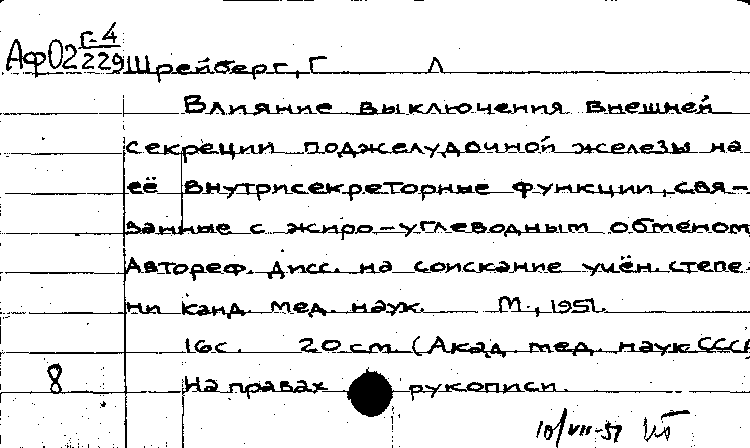 Аф02 Г-4/229
Шрейберг, Г Л
Влияние выключения внешней
секреции поджелудочной железы на
её внутрисекреторные функции, свя-
занные с жиро-углеводным обменом
Автореф. дисс. на соискание учён. степе-
ни канд. мед. наук. М., 1951.
16с. 20 см. (Акад. мед. наук СССР
8 На правах рукописи.
10/VII-51